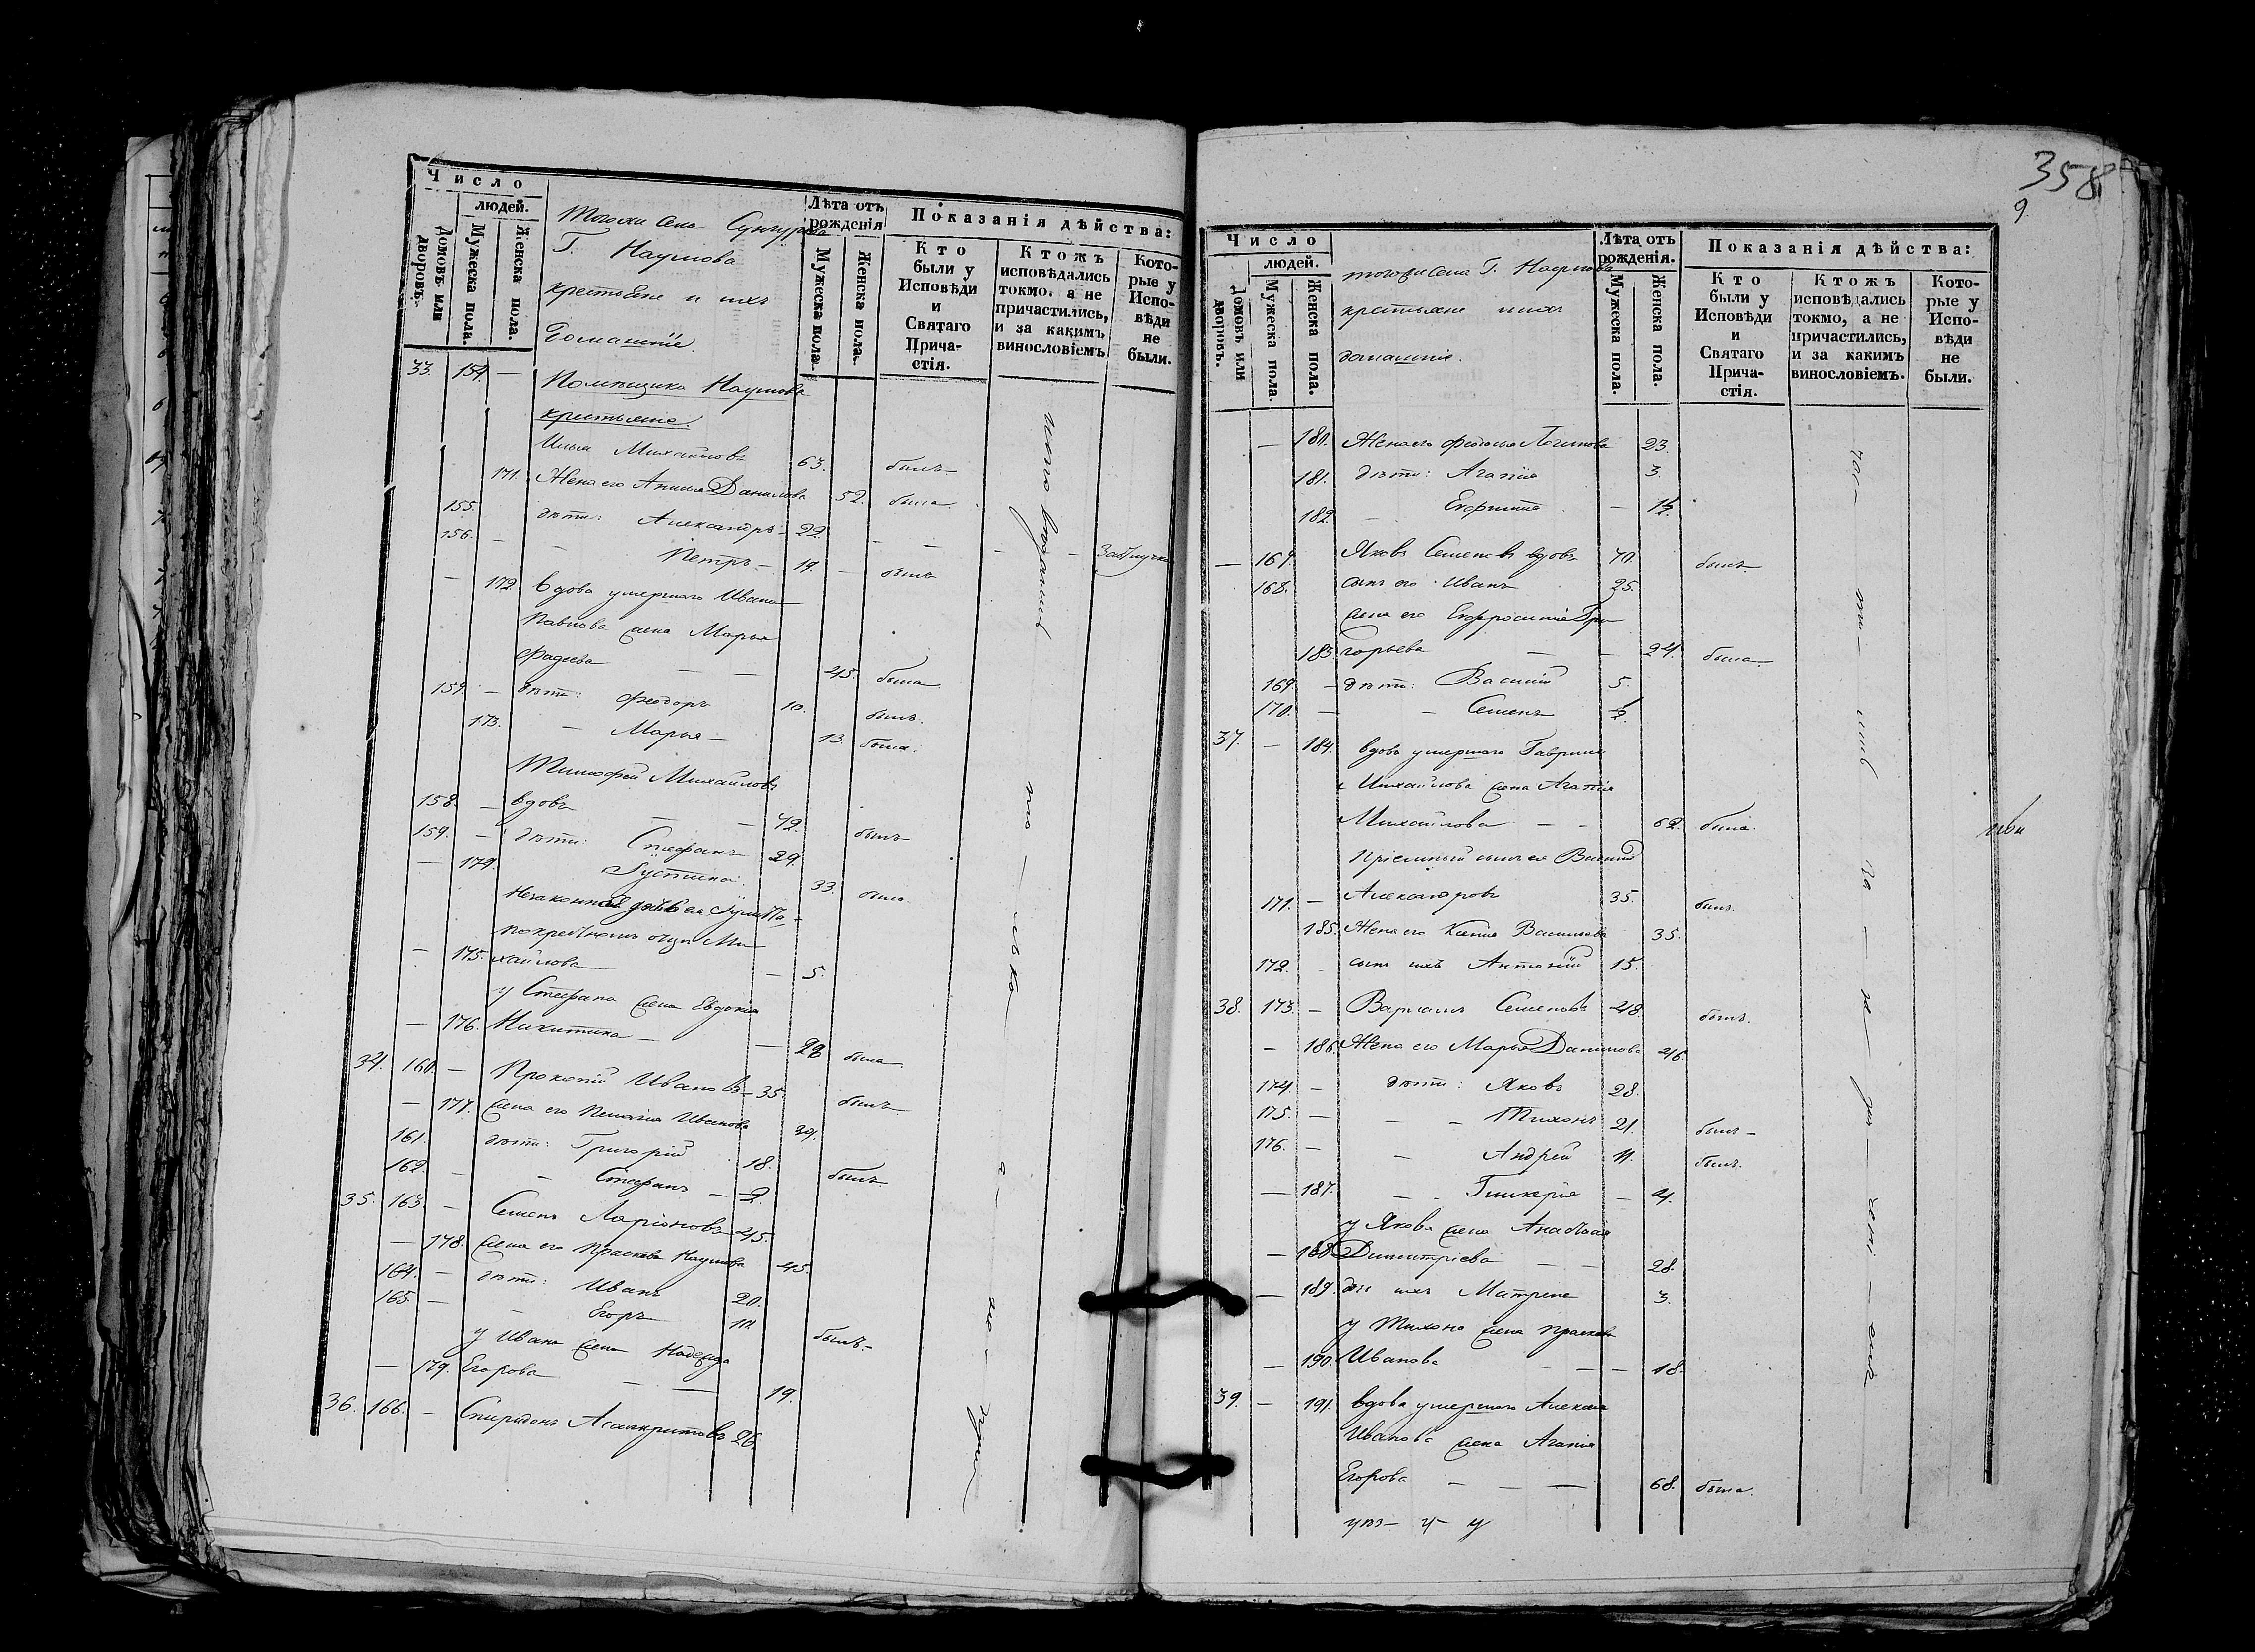 Число
людей.
Домовъ или дворовъ.
Мужеска пола.
Женска пола.
Тогоже села Сунгурова
Г. Наумова
крестьяне и ихъ
домашніе.
Лѣта отъ рожденія
Мужеска пола.
Женска пола.
Показанія дѣйства:
Кто были у Исповѣди и Святаго Причастія.
Ктожъ исповѣдались токмо, а не причастились, и за какимъ винословіемъ
Которые у Исповѣди не были.
33. 154. — Помѣщика Наумова
крестьяне
Илья Михайловъ 63. былъ
171. Жена его Анисья Данилова 52. была
155. дѣти: Александръ 22
156. — Петръ — 19. — былъ
— 172 Вдова умершаго Ивана
Павлова жена Марья
Фадѣева — — 45. была
157. — дѣти: Феодоръ 10. былъ.
173. — Марья — 13. была.
Тимофей Михайловъ
158. — вдовъ — — 42. былъ
159. — дѣти: Стефанъ 29.
— 174. Іустина 33. была.
— 175. хайлова — 5.
у Стефана жена Евдокія
— 176. Никитина — — 28 была
34. 160. — Прокопій Ивановъ 35. былъ
— 177. жена его Пелагія Иванова 39.
161. дѣти: Григорій 18. былъ
162. — — Стефанъ — 2.
35. 163. — Семенъ Ларіоновъ 45.
— 178. жена его Прасковья Наумова 45.
164. — дѣти: Иванъ 20.
165. — — Егоръ 10. былъ
у Ивана жена Надежда
— 179. Егорова — — 19.
36. 166. — Спиридонъ Асанкритовъ 26.
358
9.
Число
людей.
Домовъ или дворовъ.
Мужеска пола.
Женска пола.
тогоже села Г. Наумова
крестьяне и ихъ
домашніе.
Лѣта отъ рожденія.
Мужеска пола.
Женска пола.
Показанія дѣйства:
Кто были у Исповѣди и Святаго Причастія.
Ктожъ исповѣдались токмо, а не причастились, и за какимъ винословіемъ.
Которые у Исповѣди не были.
— 180. Жена его Феодосья Логинова 23.
181. дѣти: Агапія 3.
182. — —
— 167. Яковъ Семеновъ вдовъ 70. былъ.
168. сынъ его Иванъ 25.
жена его Ефросинія Гри
183. горьева — — 24. была
169. — дѣти: Василій 5.
170. — — Семенъ
37. — 184. вдова умершаго Гаврила
Михайлова жена Агапія
Михайлова — — 62. была.
Пріемный сынъ ея Василій
171. — Александровъ 35. былъ.
185. Жена его Ксенія Васильева 35.
172. сынъ ихъ Антоній 15.
38. 173. — Варлаамъ Семеновъ 48. былъ.
— 186. Жена его Марья Данилова 46
174. — дѣти: Яковъ 28.
175. — — — Тихонъ 21. былъ
176. — — Андрей 11. былъ.
— 187. — — Гликерія — 4.
у Якова жена Анастасія
— 188 Димитріева — — 28.
— 189. дочь ихъ Матрена 3.
у Тихона жена Прасковья
— 190. Иванова — — — 18.
39. — 191. вдова умершаго Алексѣя
Иванова жена Агапія
Егорова — — — 68. была.